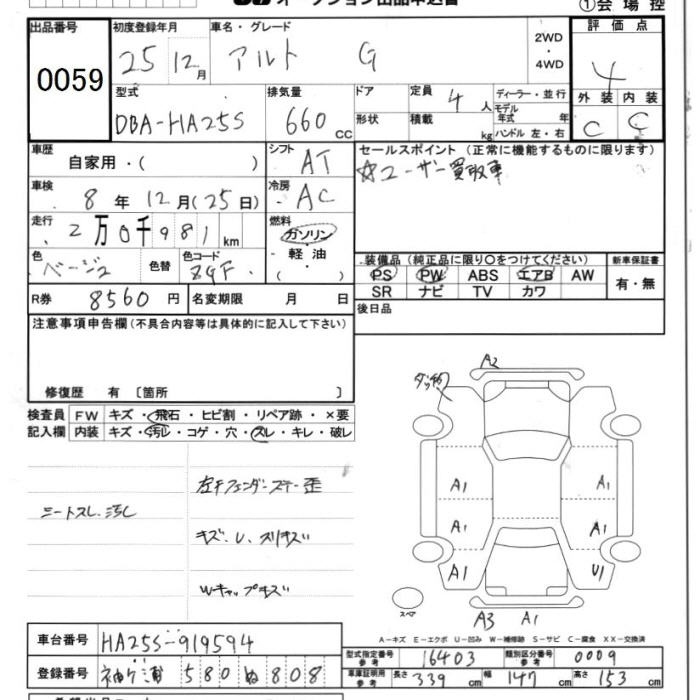 オークション出品申込書
①会場控
出品番号 初度登録年月 車名・グレード 評価点
0059 25年12月 アルト G 2WD・4WD 4
型式 排気量 ドア 定員 4人 ディーラー・並行 外装 内装
DBA-HA25S 660cc 形状 積載 kg モデル年式 年 ハンドル 左・右 C C
車歴 自家用・( ) シフト AT セールスポイント(正常に機能するものに限ります)
☆ユーザー買取車
車検 8年12月(25日) 冷房 AC
走行 2万0千981km 燃料 ガソリン・軽油・( )
色 ベージュ 色替 色コード ZQF 装備品(純正品に限り○をつけてください) 新車保証書
PS PW ABS エアB AW 有・無
SR ナビ TV カワ
R券 8560円 名変期限 月 日 後日品
注意事項申告欄(不具合内容等は具体的に記入して下さい)
修復歴 有 〔箇所 〕
検査員 FW キズ・飛石・ヒビ割・リペア跡・×要
記入欄 内装 キズ・汚レ・コゲ・穴・スレ・キレ・破レ
左Fフェンダーステー歪
シートスレ.汚レ
キズ、U、スリキズ
Wキャップキズ
A2
A1 A1
A1 A1
A1 U1
スペア
A3 A1
A－キズ E－エクボ U－凹み W－補修跡 S－サビ C－腐食 XX－交換済
車台番号 HA25S-919594
型式指定番号 参考 16403 類別区分番号 参考 0009
登録番号 袖ケ浦 580 ぬ 808
車庫証明用 参考 長さ 339cm 幅 147cm 高さ 153cm